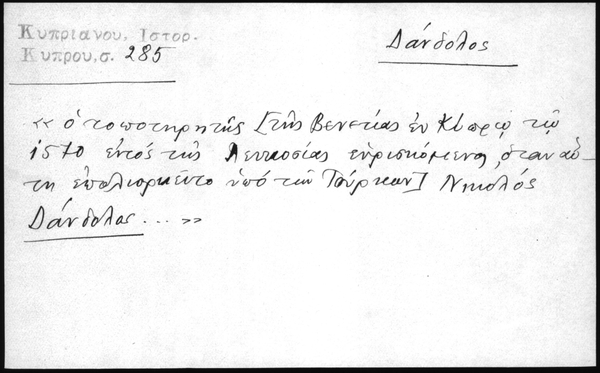 Κυπριανου, Ιστορ.
Κυπρου, σ. 285
Δάνδολος
« ὁ τοποτηρητής [τῆς Βενετίας ἐν Κύπρῳ τῷ
1570 ἐντός τῆς Λευκοσίας εὑρισκόμενος, ὅταν αὕ-
τη ἐπολιορκεῖτο ὑπό τῶν Τούρκων] Νικολός
Δάνδολος ... »